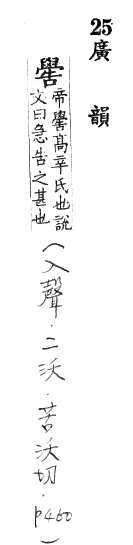 25廣韻
嚳帝嚳高辛氏也說
文曰急告之甚也
(入聲.二沃.苦沃切.p460)